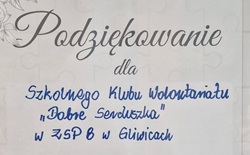 Podziękowanie
dla
Szkolnego Klubu Wolontariatu
„Dobre Serduszka"
w ZSP 8 w Gliwicach